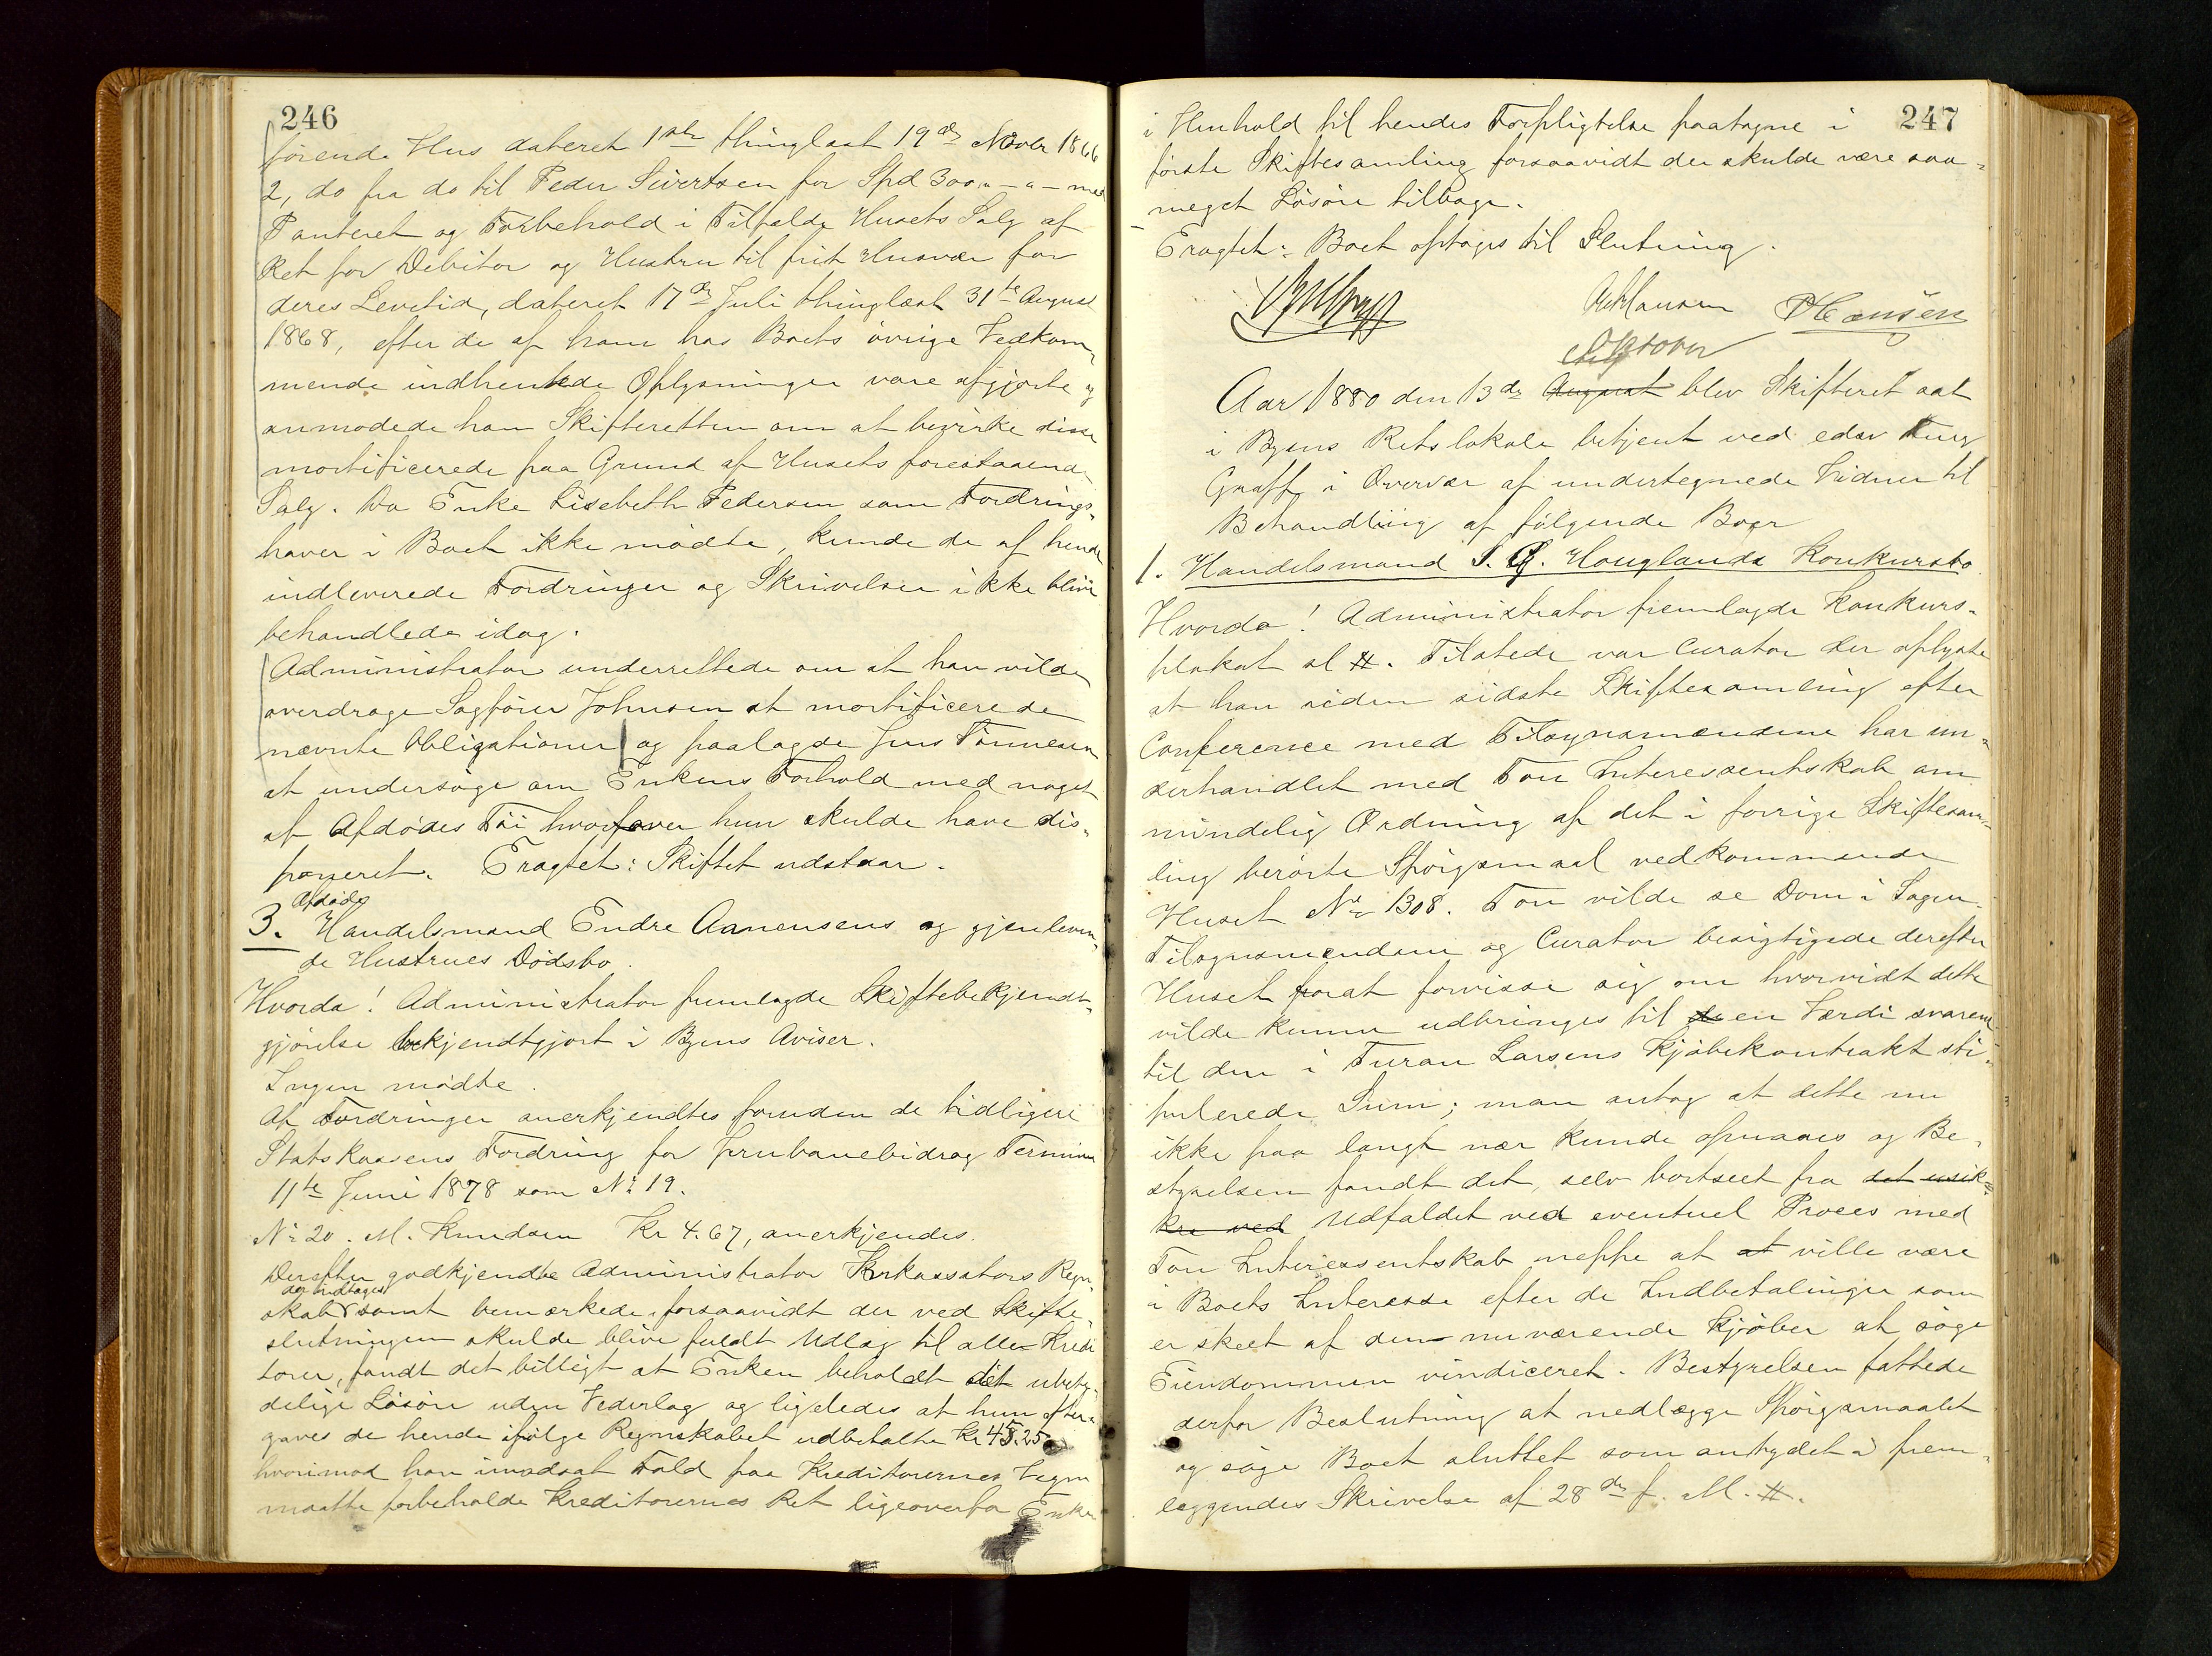 246
förende Hus dateret 1ste thinglæst 19de Novbr 1866
2, do fra do til Peder Sivertsen for Spd 300 " - " - med
Panteret og Forbehold i Tilfælde Husets Salg af
Ret for Debitor og Hustru til frit Husvær for
deres Levetid, dateret 17de Juli thinglæst 31te August
1868, efter de af ham hos Boets övrige Vedkom-
mende indhentede Oplysninger vare afgjorte og
anmodede han Skifteretten om at bevirke disse
mortificerede paa Grund af Husets forestaaende
Salg. Da Enke Lisebeth Pedersen som Fordrings-
haver i Boet ikke mödte, kunde de af hende
indleverede Fordringer og Skrivelser ikke blive
behandlede idag.
Administrator underrettede om at han vilde
overdrage Sagförer Johnsen at mortificere de
nævnte Obligationer og paalagde Jens Tönnesen
at undersöge om Enkens Forhold med noget
af Afdödes Töi hvorover hun skulde have dis-
poneret. Eragtet: Skiftet udstaar.
Afdöde
3. Handelsmand Endre Aanensens og gjenleven-
de Hustrues Dödsbo.
Hvorda! Administrator fremlagde Skiftebekjendt-
gjörelse bekjendtgjort i Byens Aviser.
Ingen mödte.
Af Fordringer anerkjendtes foruden de tidligere
Statskassens Fordring for Jernbanebidrag Termin
11te Juni 1878 som No 19.
No 20. M. Knudsen Kr 4.67, anerkjendes.
Derefter godkjendte Administrator Inkassators Regn-
der indtoges
skab samt bemærkede, forsaavidt der ved Skifte-
slutningen skulde blive fuldt Udlæg til alle Kredi
torer, fandt det billigt at Enken beholdt det ubety-
delige Lösöre uden Vederlag og ligeledes at hun efter-
gaves de hende ifölge Regnskabet udbetalte Kr 45.25
hvorimod han imodsat Fald paa Kreditorernes Vegne
maatte forbeholde Kreditorernes Ret ligeoverfor Enken
247
i Henhold til hendes Forpligtelse paatagne i
förste Skiftesamling forsaavidt der skulde være saa-
meget Lösöre tilbage.
Eragtet: Boet optages til Slutning.
Hansen PHansen
Oktober
Aar 1880 den 13de August blev Skifteret sat
i Byens Retslokale betjent ved edsv Fuldm
Graff i Overvær af undertegnede Vidner til
Behandling af fölgende Boer
1. Handelsmand S. G. Houglands Konkursbo
Hvorda! Administrator fremlagde Konkurs-
plakat al #. Tilstede var Curator der oplyste
at han siden sidste Skiftesamling efter
Conference med Tilsynsmændene har un-
derhandlet med Tou Interessentskab om
mindelig Ordning af det i forrige Skiftesam-
ling berörte Spörgsmaal vedkommende
Huset No 1308. Tou vilde se Dom i Sagen.
Tilsynsmændene og Curator besigtigede derefter
Huset forat forvisse sig om hvorvidt dette
vilde kunne udbringes til de en Værdi svarende
til den i Turan Larsens Kjöbekontrakt sti-
pulerede Sum; man antog at dette nu
ikke paa langt nær kunde opnaaes og Be-
styrelsen fandt det, selv bortseet fra det usik-
kre ved Udfaldet ved eventuel Proces med
Tou Interessentskab neppe at at ville være
i Boets Interesse efter de Indbetalinger som
er skeet af den nuværende Kjöber at söge
Eiendommen vindiceret. Bestyrelsen fattede
derfor Beslutning at nedlægge Spörgsmaalet
og söge Boet sluttet som antydet i frem-
læggendes Skrivelse af 28de f. M. #.